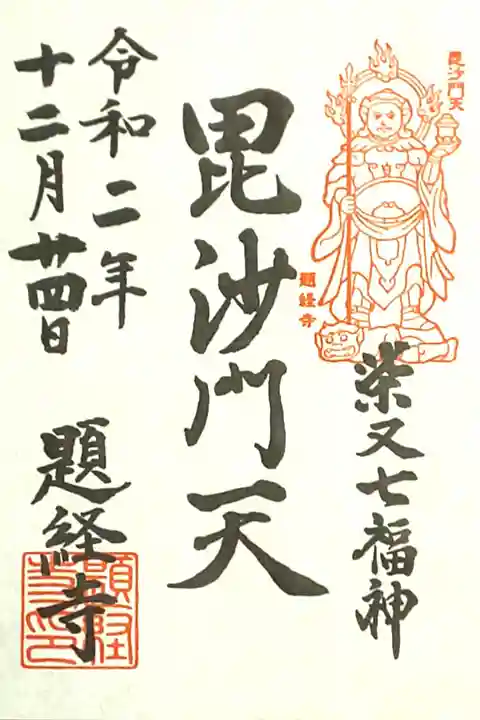 毘沙門天
題経寺
柴又七福神
毘沙門天
令和二年
十二月廿四日
題経寺